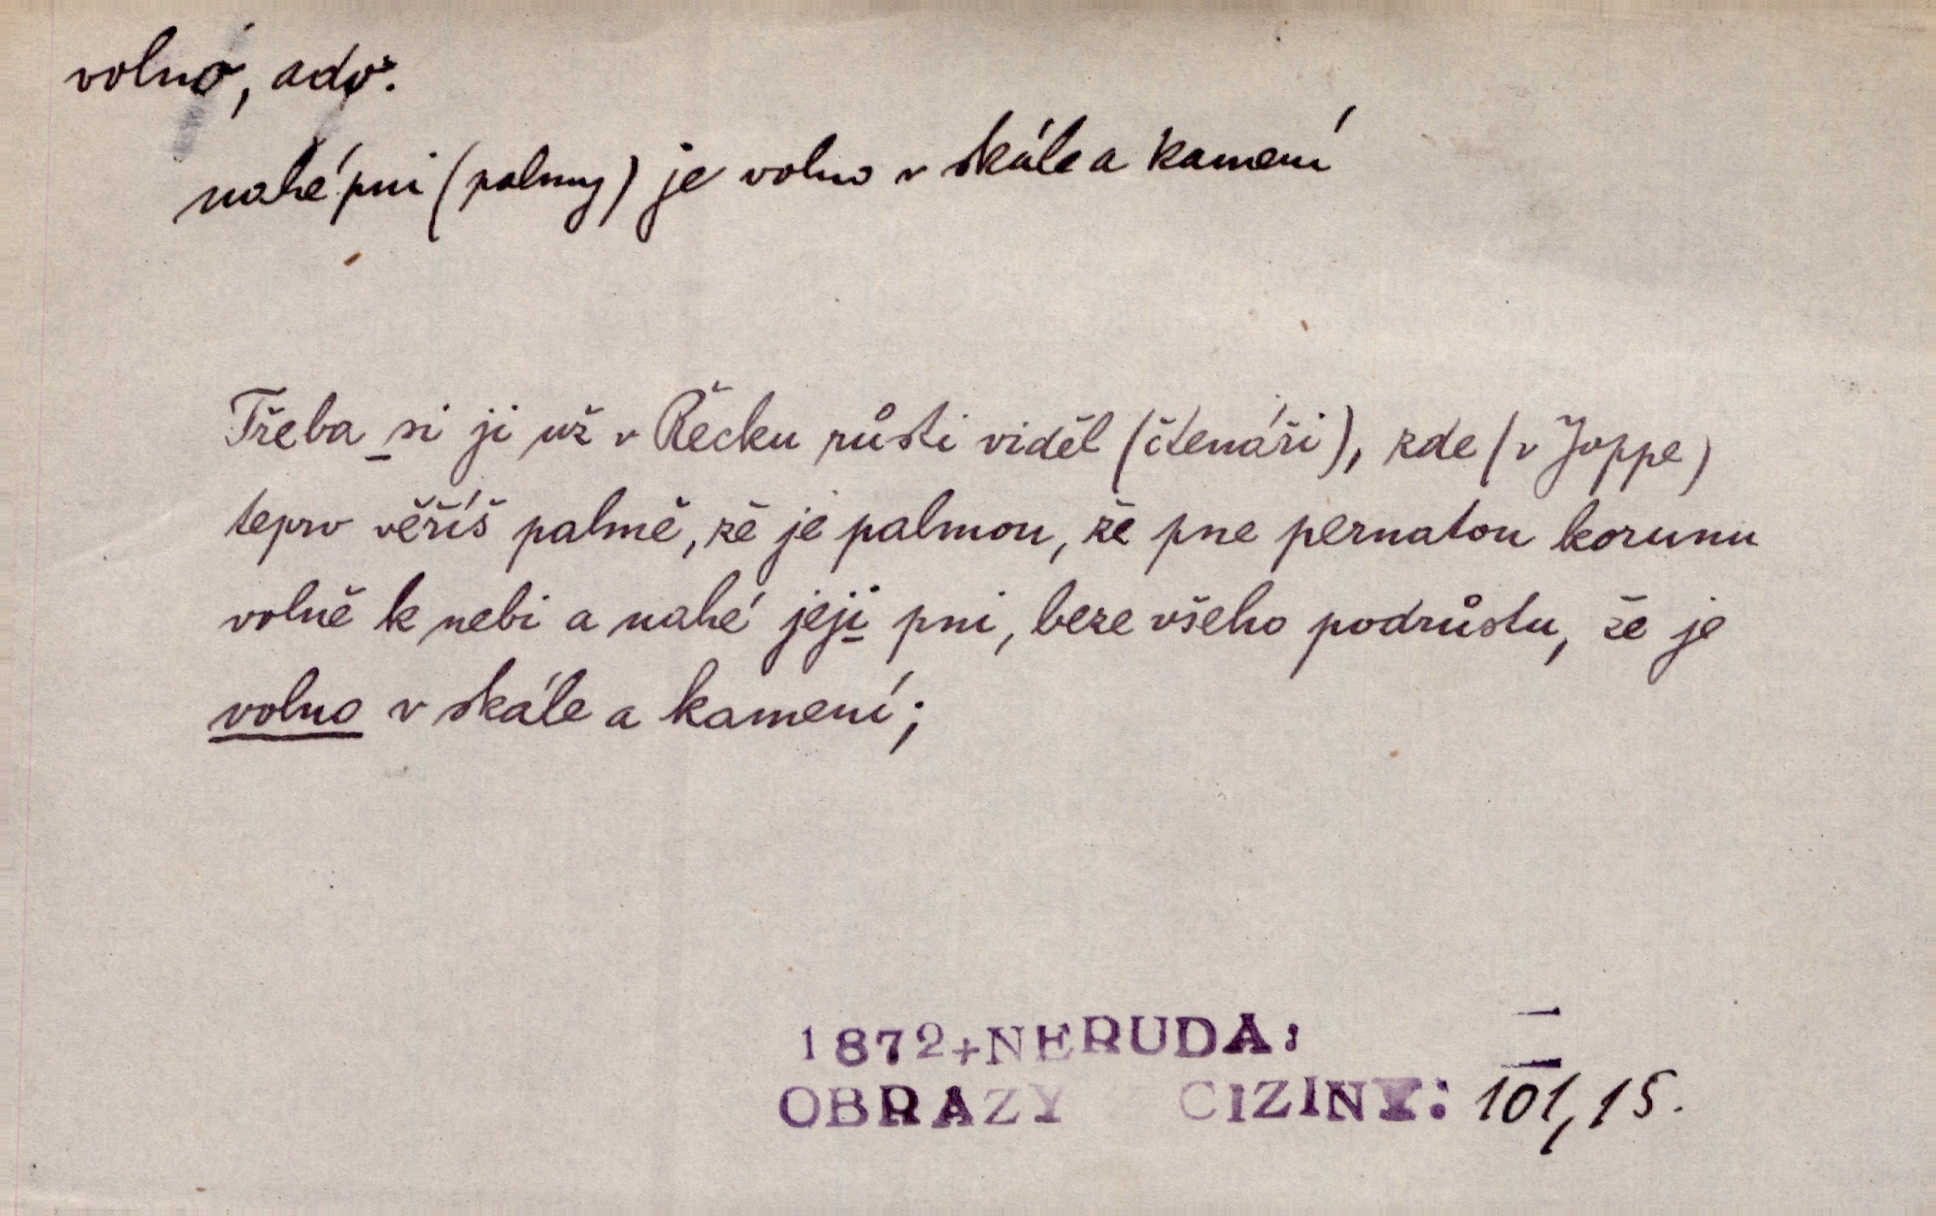 volno, adv.
nahé pni (palmy) je volno v skále a kamení
Třeba si ji už v Řecku růsti viděl (čtenáři), zde (v Joppe)
teprv věříš palmě, že je palmou, že pne pernatou korunu
volně k nebi a nahé její pni, beze všeho podrůstu, že je
volno v skále a kamení;
1872+NERUDA:
OBRAZY CIZINY: 101, 15.